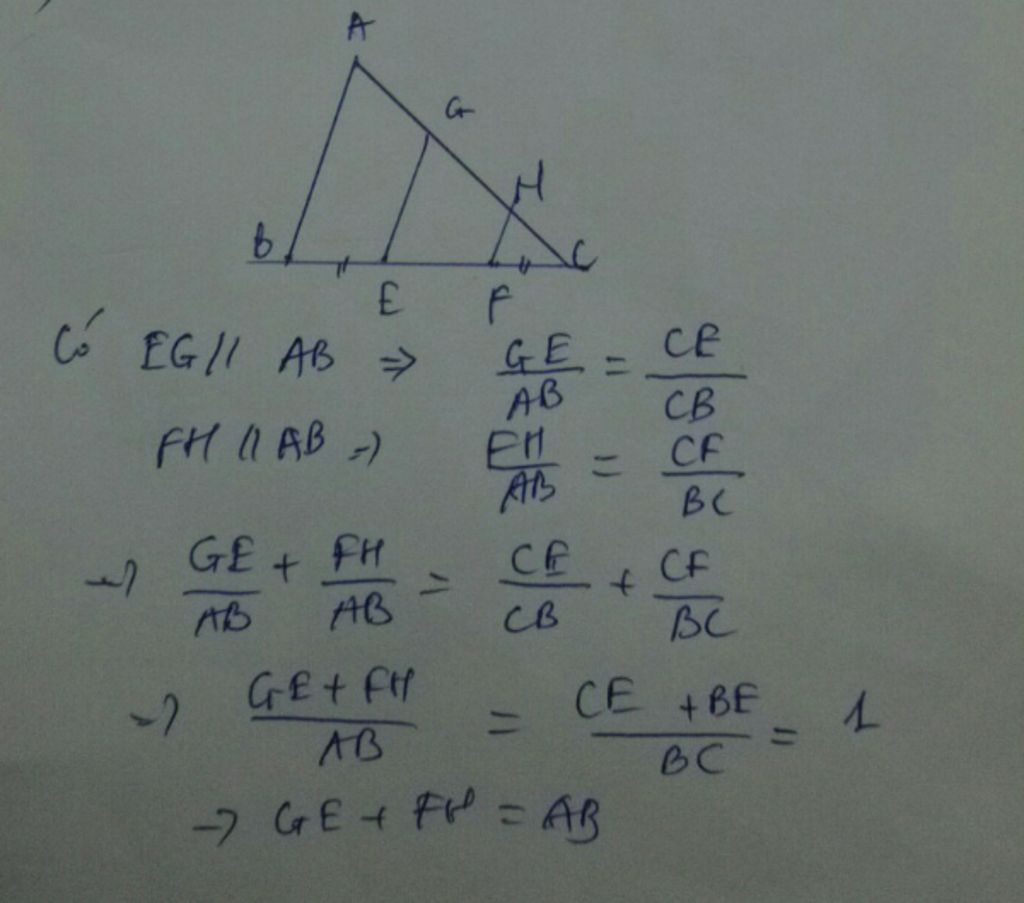 A
G
H
B
C
E
F
Có EG // AB ⇒ GE/AB = CE/CB
FH // AB ⇒ FH/AB = CF/BC
→ GE/AB + FH/AB = CE/CB + CF/BC
→ GE + FH/AB = CE + BE/BC = 1
→ GE + FH = AB